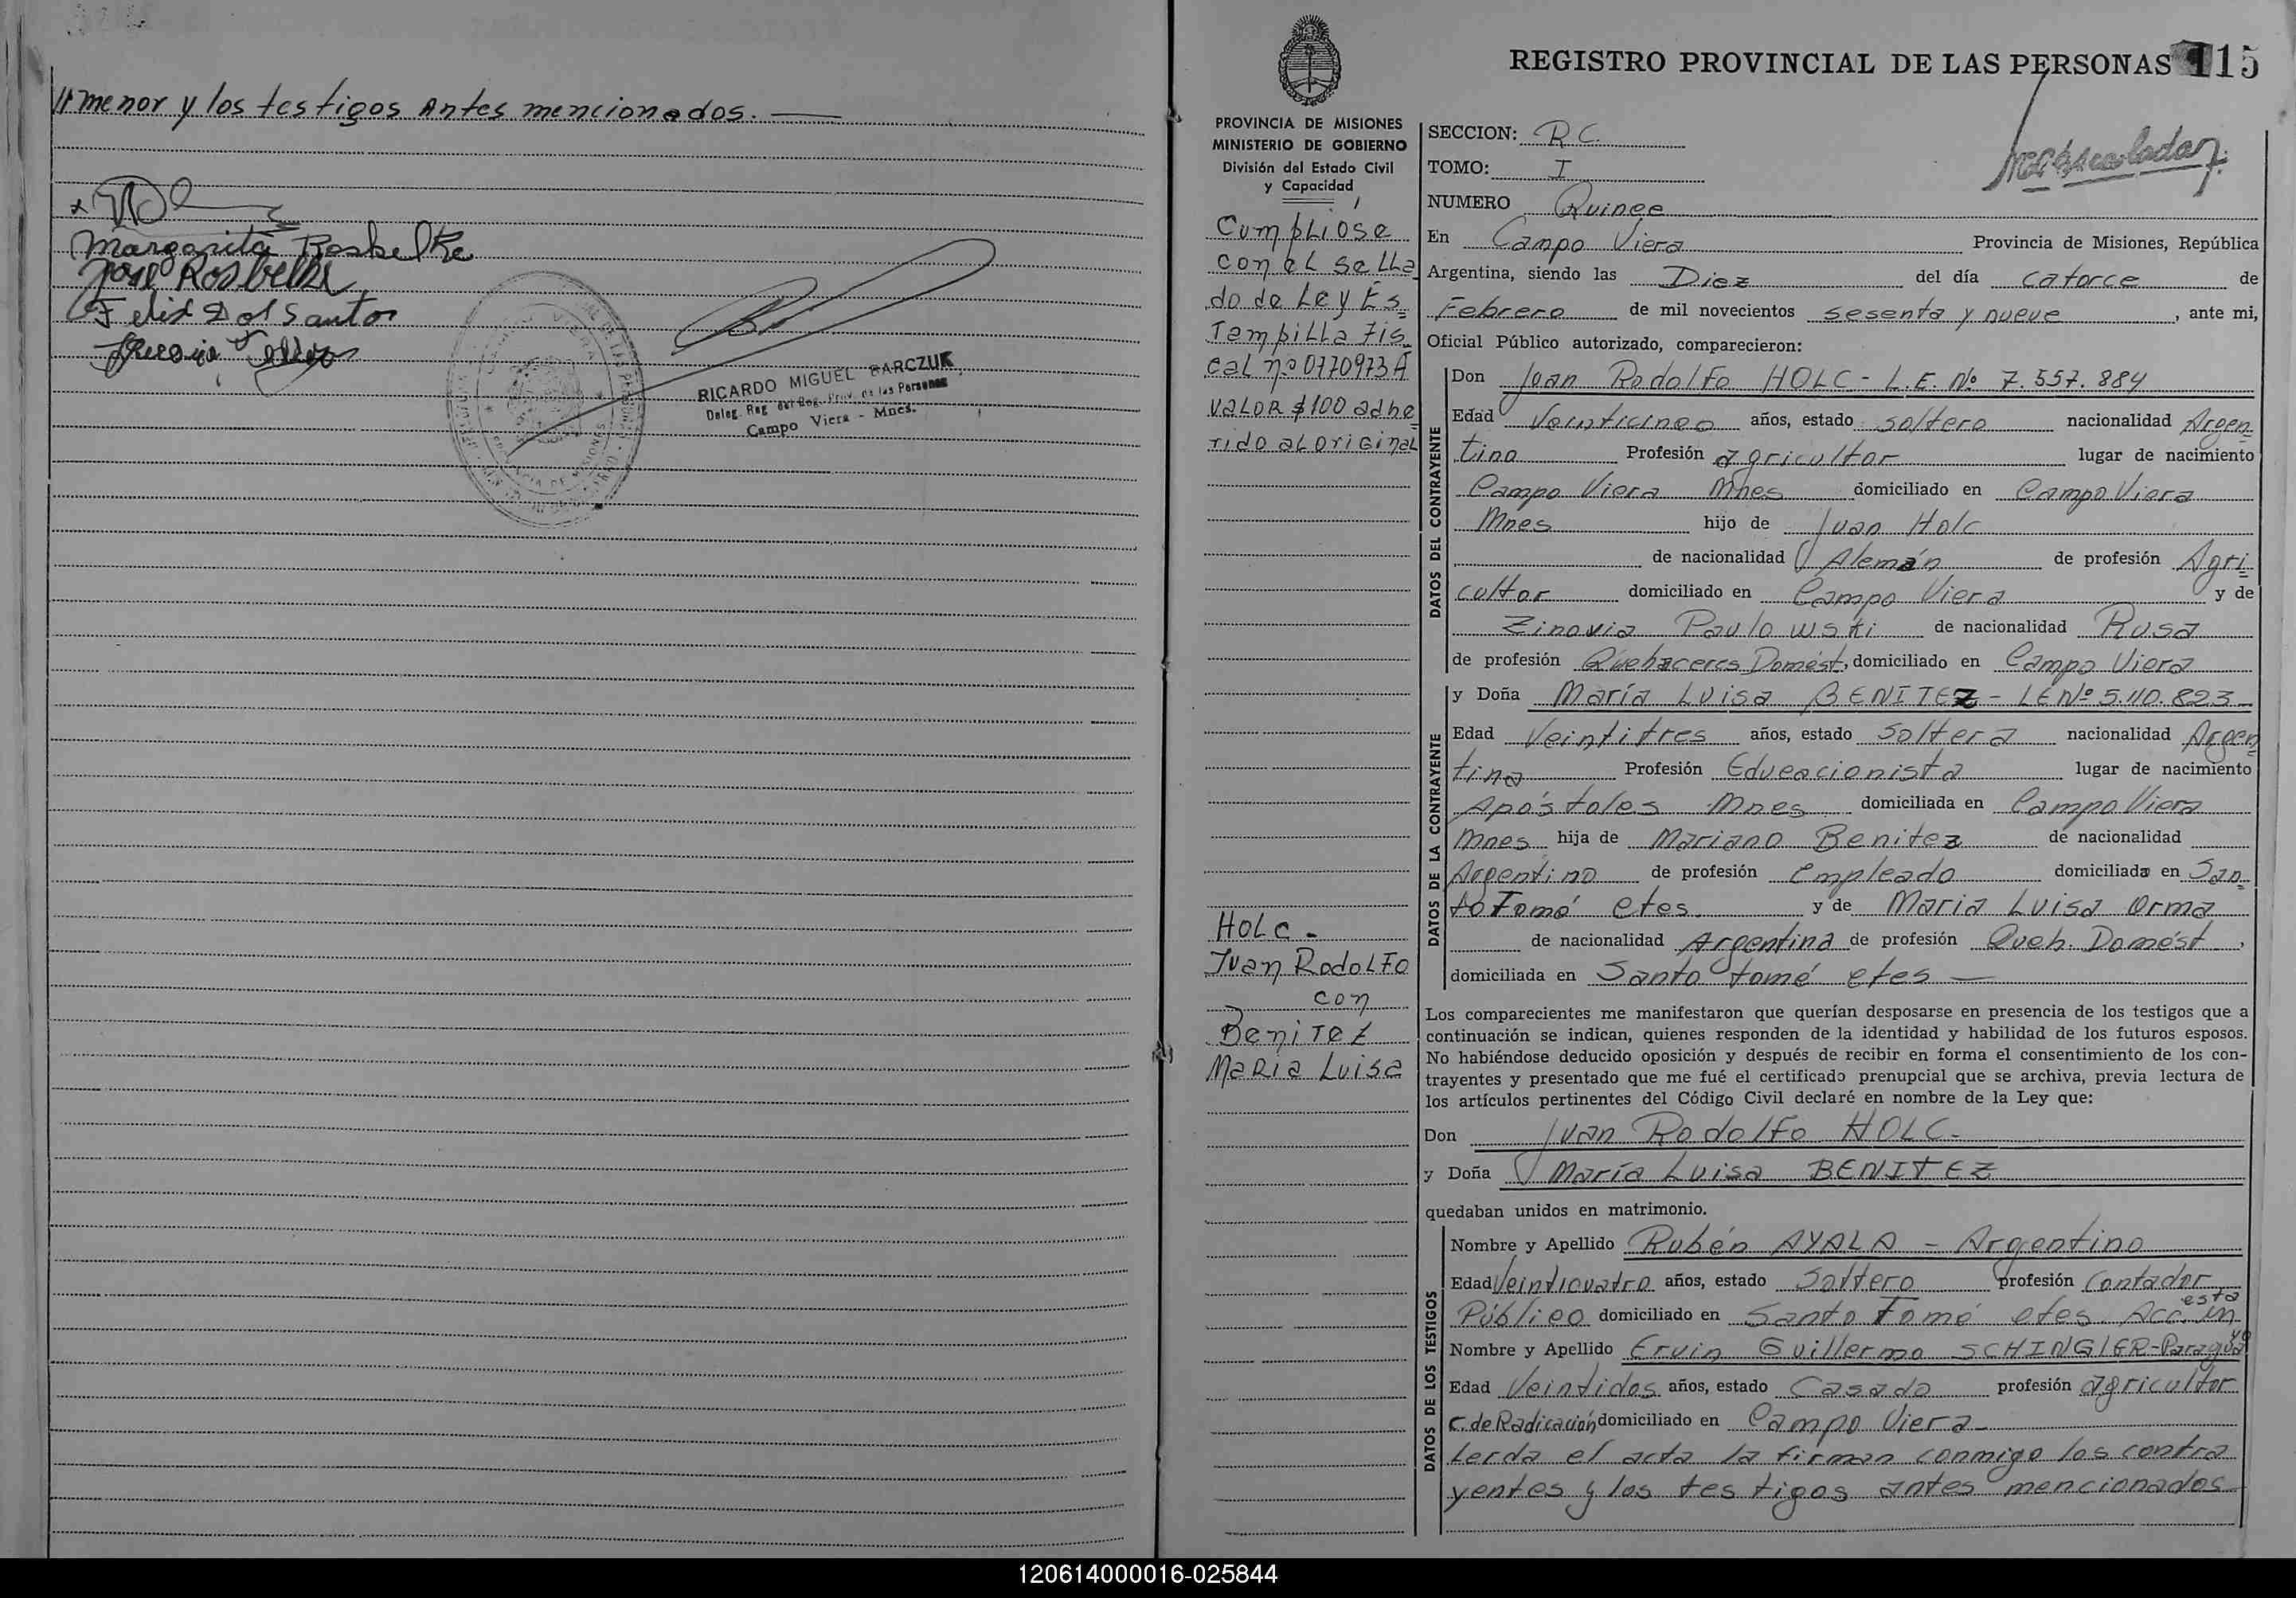 // menor y los testigos antes mencionados. —
Margarita Roskelke
Jose
Felix Dos Santos
RICARDO MIGUEL BARCZUK
Deleg. Reg. del Reg. Prov. de las Personas
Campo Viera - Mnes.
REGISTRO PROVINCIAL DE LAS PERSONAS 115
PROVINCIA DE MISIONES
MINISTERIO DE GOBIERNO
División del Estado Civil
y Capacidad
Cumpliose
con el sella
do de Ley Es
Tampilla Fis
cal nº 0770973A
valor $100 adhe
rido al original
HOLC -
Juan Rodolfo
con
Benitez
Maria Luisa
SECCION: R.C.
TOMO: I
NUMERO Quince
En Campo Viera Provincia de Misiones, República
Argentina, siendo las Diez del día catorce de
Febrero de mil novecientos sesenta y nueve, ante mi,
Oficial Público autorizado, comparecieron:
DATOS DEL CONTRAYENTE
Don Juan Rodolfo HOLC - L.E. Nº 7.557.884
Edad Veinticinco años, estado soltero nacionalidad Argen
tina Profesión agricultor lugar de nacimiento
Campo Viera Mnes domiciliado en Campo Viera
Mnes hijo de Juan Holc
de nacionalidad Alemán de profesión Agri
cultor domiciliado en Campo Viera y de
Zinovia Paulowski de nacionalidad Rusa
de profesión Quehaceres Domést, domiciliado en Campo Viera
DATOS DE LA CONTRAYENTE
y Doña María Luisa BENITEZ - LE Nº 5.110.823
Edad Veintitres años, estado Soltera nacionalidad Argen
tina Profesión Educacionista lugar de nacimiento
Apóstoles Mnes domiciliada en Campo Viera
Mnes hija de Mariano Benitez de nacionalidad
Argentino de profesión Empleado domiciliado en San
to Tomé ctes. y de Maria Luisa Orma
de nacionalidad Argentina de profesión Queh. Domést,
domiciliada en Santo tomé ctes —
Los comparecientes me manifestaron que querían desposarse en presencia de los testigos que a
continuación se indican, quienes responden de la identidad y habilidad de los futuros esposos.
No habiéndose deducido oposición y después de recibir en forma el consentimiento de los con-
trayentes y presentado que me fué el certificado prenupcial que se archiva, previa lectura de
los artículos pertinentes del Código Civil declaré en nombre de la Ley que:
Don Juan Rodolfo HOLC -
y Doña María Luisa BENITEZ
quedaban unidos en matrimonio.
DATOS DE LOS TESTIGOS
Nombre y Apellido Rubén AYALA - Argentino
Edad Veinticuatro años, estado Soltero profesión Contador
Público domiciliado en Santo Tomé ctes. Acc. en esta
Nombre y Apellido Ervin Guillermo SCHINGLER - Paraguayo
Edad Veintidos años, estado Casado profesión agricultor
C. de Radicación domiciliado en Campo Viera -
Leída el acta la firman conmigo los contra
yentes y los testigos antes mencionados
120614000016-025844